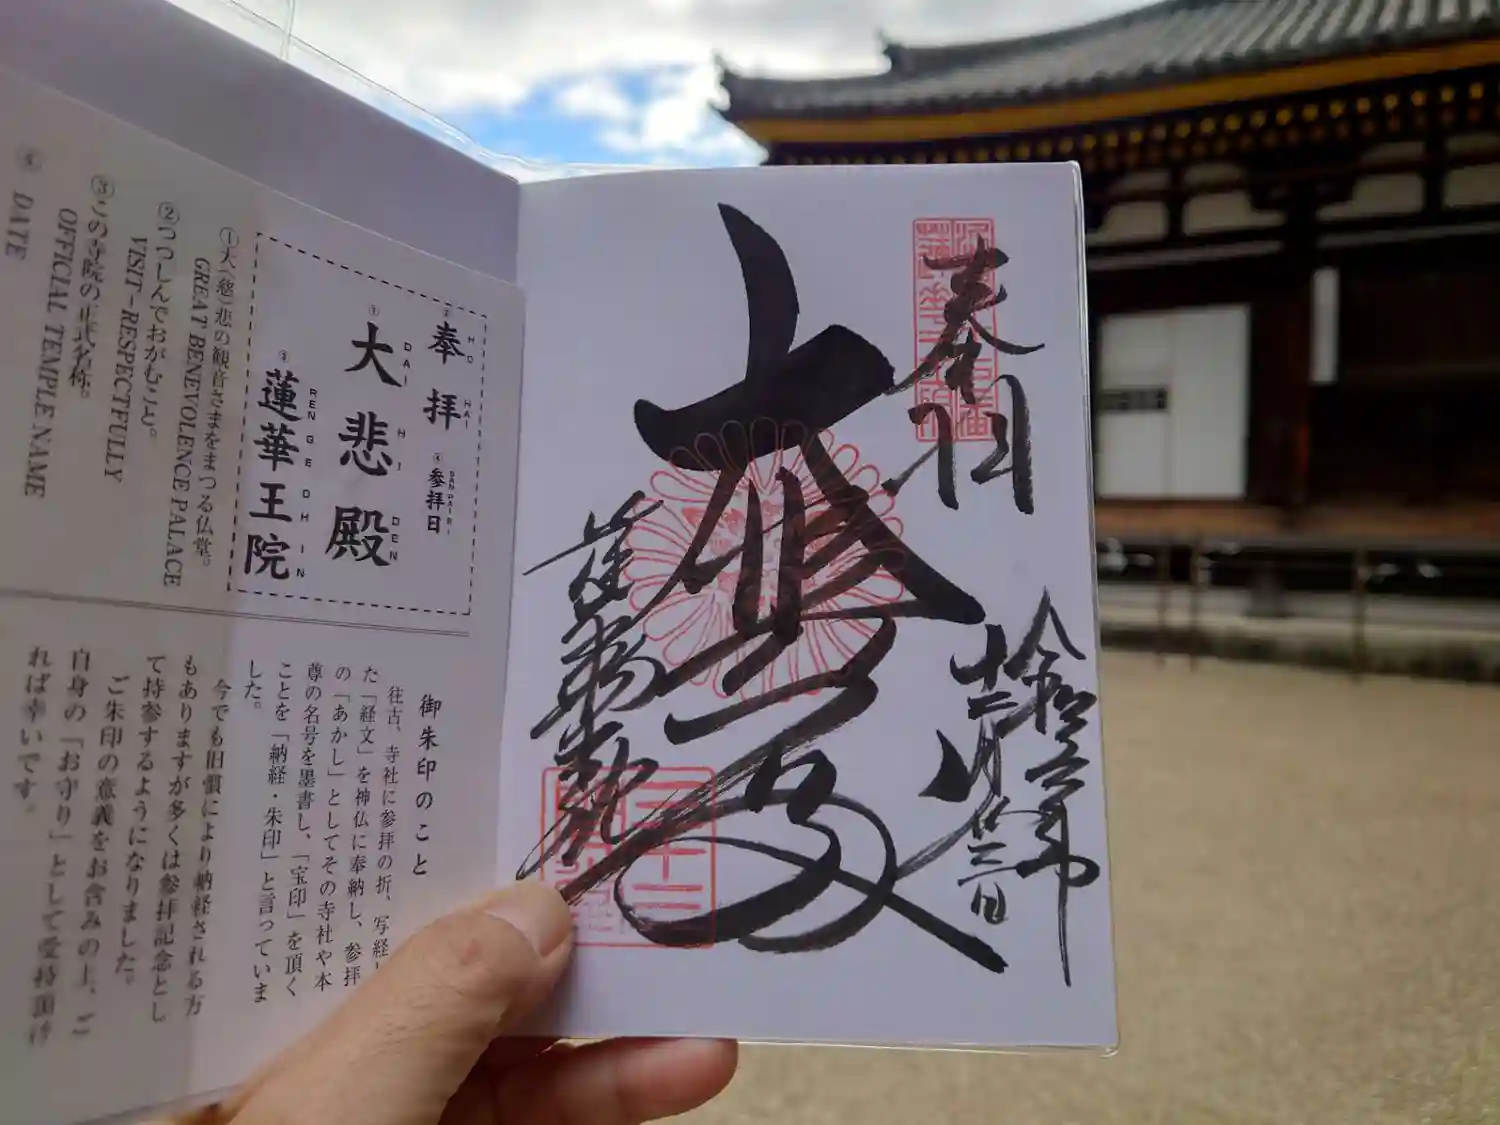 奉拝
大悲殿
蓮華王院
②
奉拝
HO HAI
④
参拝日
SAN PAI BI
①
大悲殿
DAI HI DEN
③
蓮華王院
REN GE OH IN
①大(慈)悲の観音さまをまつる仏堂。
GREAT BENEVOLENCE PALACE
②つつしんでおがむこと。
VISIT-RESPECTFULLY
③この寺院の正式名称。
OFFICIAL TEMPLE NAME
DATE
御朱印のこと
往古、寺社に参拝の折、写経し
た「経文」を神仏に奉納し、参拝
の「あかし」としてその寺社や本
尊の名号を墨書し、「宝印」を頂く
ことを「納経・朱印」と言っていま
した。
今でも旧慣により納経される方
もありますが多くは参拝記念とし
て持参するようになりました。
ご朱印の意義をお含みの上、ご
自身の「お守り」として受持頂け
れば幸いです。